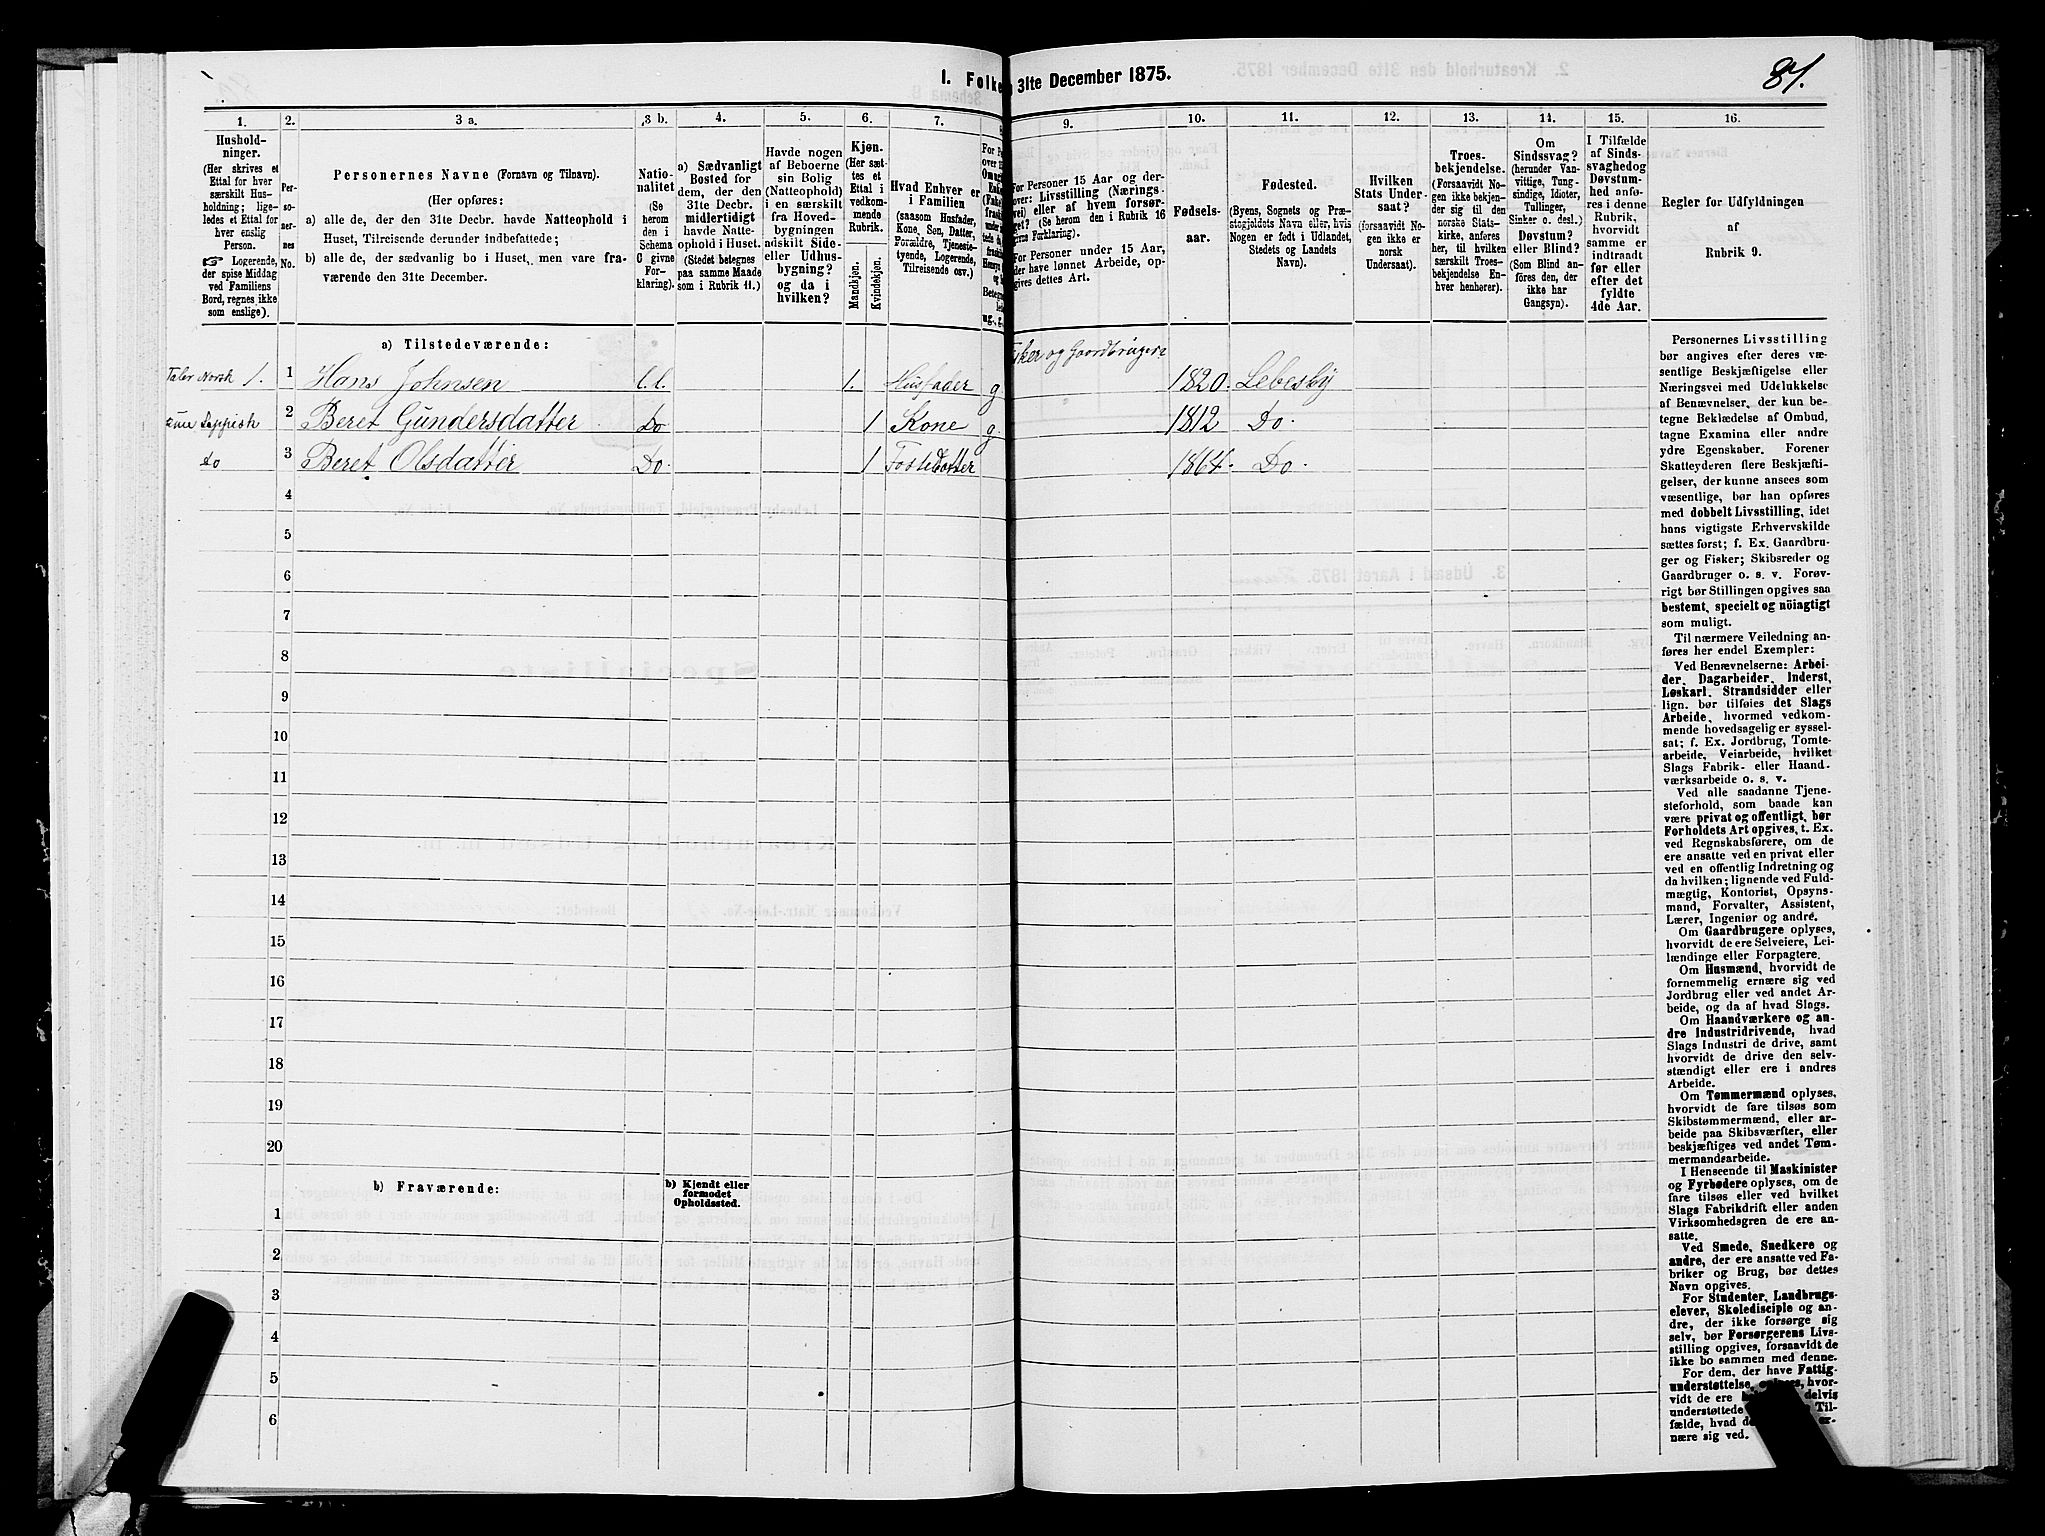 1. Folke
31te December 1875.
81.
1.
2.
3 a.
3 b.
4.
5.
6.
7.
9.
10.
11.
12.
13.
14.
15.
16.
Hushold-
ninger.
(Her skrives et
Ettal for hver
særskilt Hus-
holdning; lige-
ledes et Ettal for
hver enslig
Person.
☞ Logerende,
der spise Middag
ved Familiens
Bord, regnes ikke
som enslige).
Per-
so-
ner-
nes
No.
Personernes Navne (Fornavn og Tilnavn).
(Her opføres:
a) alle de, der den 31te Decbr. havde Natteophold i
Huset, Tilreisende derunder indbefattede;
b) alle de, der sædvanlig bo i Huset, men vare fra-
værende den 31te December.
Natio-
nalitet
(Se
herom
den i
Schema
C givne
For-
klaring).
a) Sædvanligt
Bosted for
dem, der den
31te Decbr.
midlertidigt
havde Natte-
ophold i Huset.
(Stedet betegnes
paa samme Maade
som i Rubrik 11.)
Havde nogen
af Beboerne
sin Bolig
(Natteophold)
i en særskilt
fra Hoved-
bygningen
adskilt Side-
eller Udhus-
bygning?
og da i
hvilken?
Kjøn.
(Her sæt-
tes et
Ettal i
vedkom-
mende
Rubrik.
Mandkjøn.
Kvindekjøn.
Hvad Enhver er
i Familien
(saasom Husfader,
Kone, Søn, Datter,
Forældre, Tjeneste-
tyende, Logerende,
Tilreisende osv.)
For Personer 15 Aar og der-
over: Livsstilling (Nærings-
vei) eller af hvem forsør-
get? (Se herom den i Rubrik 16
givne Forklaring).
For Personer under 15 Aar,
der have lønnet Arbeide, op-
gives dettes Art.
Fødsels-
aar.
Fødested.
(Byens, Sognets og Præ-
stegjeldets Navn eller, hvis
Nogen er født i Udlandet,
Stedets og Landets
Navn).
Hvilken
Stats Under-
saat?
(forsaavidt No-
gen ikke er
norsk
Undersaat).
Troes-
bekjendelse.
(Forsaavidt No-
gen ikke bekjen-
der sig til den
norske Stats-
kirke, anføres
her, til hvilken
særskilt Troes-
bekjendelse En-
hver henhører).
Om
Sindssvag?
(herunder Van-
vittige, Tung-
sindige, Idioter,
Tullinger,
Sinker o. desl.)
Døvstum?
eller Blind?
(Som Blind an-
føres den, der
ikke har
Gangsyn).
I Tilfælde
af Sinds-
svaghedog
Døvstum-
hed anfø-
res i denne
Rubrik,
hvorvidt
samme er
indtraadt
før eller
efter det
fyldte
4de Aar.
Regler for Udfyldningen
af
Rubrik 9.
a) Tilstedeværende:
og Gaardbruger
Taler Norsk 1. 1 Hans Johnsen l.l. 1. Husfader g 1820. Lebesby
Lappisk 2 Beret Gundersdatter Do 1 Kone g. 1812 Do.
do 3 Beret Olsdatter Do. 1 1864. Do.
4
5
6
7
8
9
10
11
12
13
14
15
16
17
18
19
20
b) Fraværende:
b) Kjendt eller
formodet
Opholdssted.
1
2
3
4
5
6
Personernes Livsstilling
bør angives efter deres væ-
sentlige Beskjæftigelse eller
Næringsvei med Udelukkelse
af Benævnelser, der kun be-
tegne Beklædelse af Ombud,
tagne Examina eller andre
ydre Egenskaber. Forener
Skatteyderen flere Beskjæfti-
gelser, der kunne ansees som
væsentlige, bør han opføres
med dobbelt Livsstilling, idet
hans vigtigste Erhvervskilde
sættes først; f. Ex. Gaardbru-
ger og Fisker; Skibsreder og
Gaardbruger o. s. v. Forøv-
rigt bør Stillingen opgives saa
bestemt, specielt og nöiagtigt
som muligt.
Til nærmere Veiledning an-
føres her endel Exempler:
Ved Benævnelserne: Arbei-
der, Dagarbeider, Inderst,
Løskarl, Strandsidder eller
lign. bør tilføies det Slags
Arbeide, hvormed vedkom-
mende hovedsagelig er syssel-
sat; f. Ex. Jordbrug, Tomte-
arbeide, Veiarbeide, hvilket
Slags Fabrik- eller Haand-
værksarbeide o. s. v.
Ved alle saadanne Tjene-
steforhold, som baade kan
være privat og offentligt, bør
Forholdets Art opgives, t. Ex.
ved Regnskabsførere, om de
ere ansatte ved en privat eller
ved en offentlig Indretning og
da hvilken; lignende ved Fuld-
mægtig, Kontorist, Opsyns-
mand, Forvalter, Assistent,
Lærer, Ingeniør og andre.
Om Gaardbrugere oplyses,
hvorvidt de ere Selveiere, Lei-
lændinge eller Forpagtere.
Om Husmænd, hvorvidt de
fornemmelig ernære sig ved
Jordbrug eller ved andet Ar-
beide, og da af hvad Slags.
Om Haandværkere og an-
dre Industridrivende, hvad
Slags Industri de drive, samt
hvorvidt de drive den selv-
stændigt eller ere i andres
Arbeide.
Om Tømmermænd oplyses,
hvorvidt de fare tilsøs som
Skibstømmermænd, eller ar-
beide paa Skibsværfter, eller
beskjæftiges ved andet Tøm-
mermandsarbeide.
I Henseende til Maskinister
og Fyrbødere oplyses, om de
fare tilsøs eller ved hvilket
Slags Fabrikdrift eller anden
Virksomhedsgren de ere an-
satte.
Ved Smede, Snedkere og
andre, der ere ansatte ved Fa-
briker og Brug, bør dettes
Navn opgives.
For Studenter, Landbrugs-
elever, Skoledisciple og an-
dre, der ikke forsørge sig
selv, bør Forsørgerens Livs-
stilling opgives, forsaavidt de
ikke bo sammen med denne.
For dem, der have Fattig-
understøttelse, hvor-
vidt de ere delvis
understøttede Til-
fælde, hvad
nære sig ved.